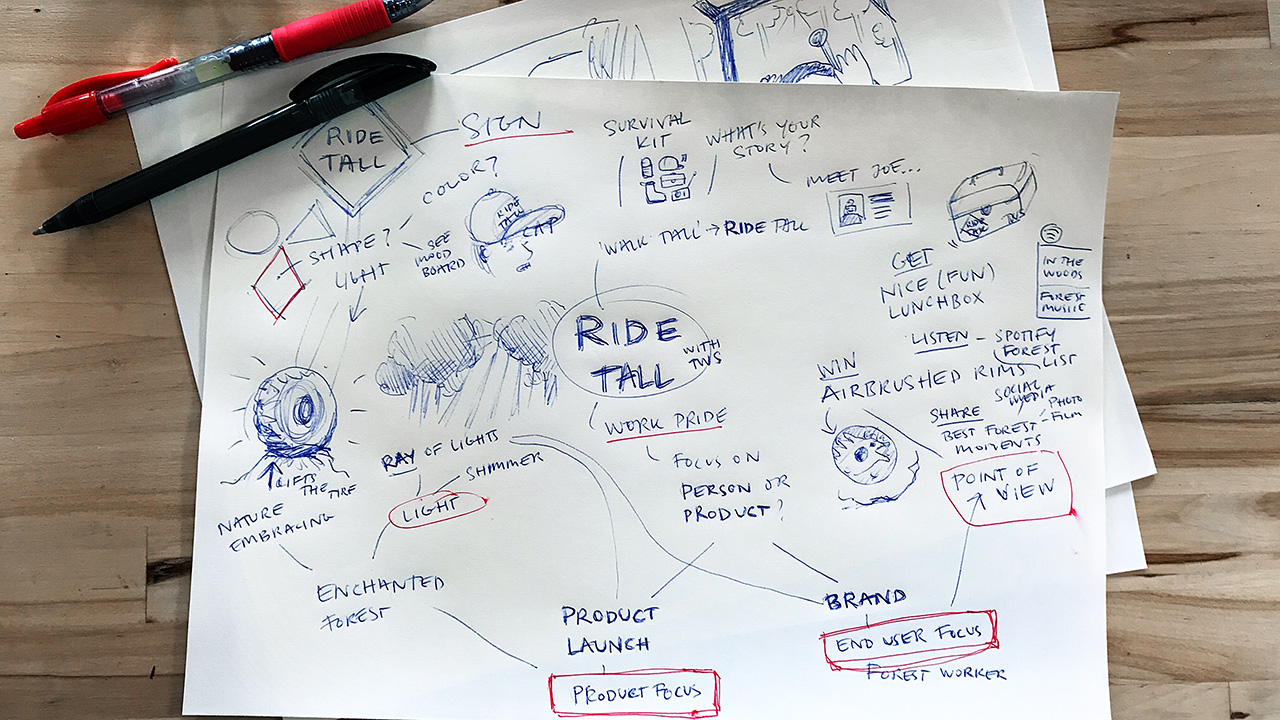 RIDE
TALL
SIGN
COLOR?
SHAPE?
SEE
MOOD
BOARD
LIGHT
RIDE
TALL
CAP
SURVIVAL
KIT
WHAT'S YOUR
STORY?
MEET JOE...
'WALK TALL' → RIDE TALL
GET
NICE (FUN)
LUNCHBOX
RIDE
TALL
TWS
IN THE
WOODS
FOREST
MUSIC
RIDE
TALL
WITH
TWS
WORK PRIDE
FOCUS ON
PERSON OR
PRODUCT?
LISTEN - SPOTIFY
FOREST
LIST
WIN
AIRBRUSHED RIMS
SHARE
SOCIAL
MEDIA
PHOTO
FILM
BEST FOREST
MOMENTS
POINT OF
VIEW
RAY OF LIGHTS
SHIMMER
LIGHT
LIFTS
THE TIRE
NATURE
EMBRACING
ENCHANTED
FOREST
PRODUCT
LAUNCH
PRODUCT FOCUS
BRAND
END USER FOCUS
FOREST WORKER